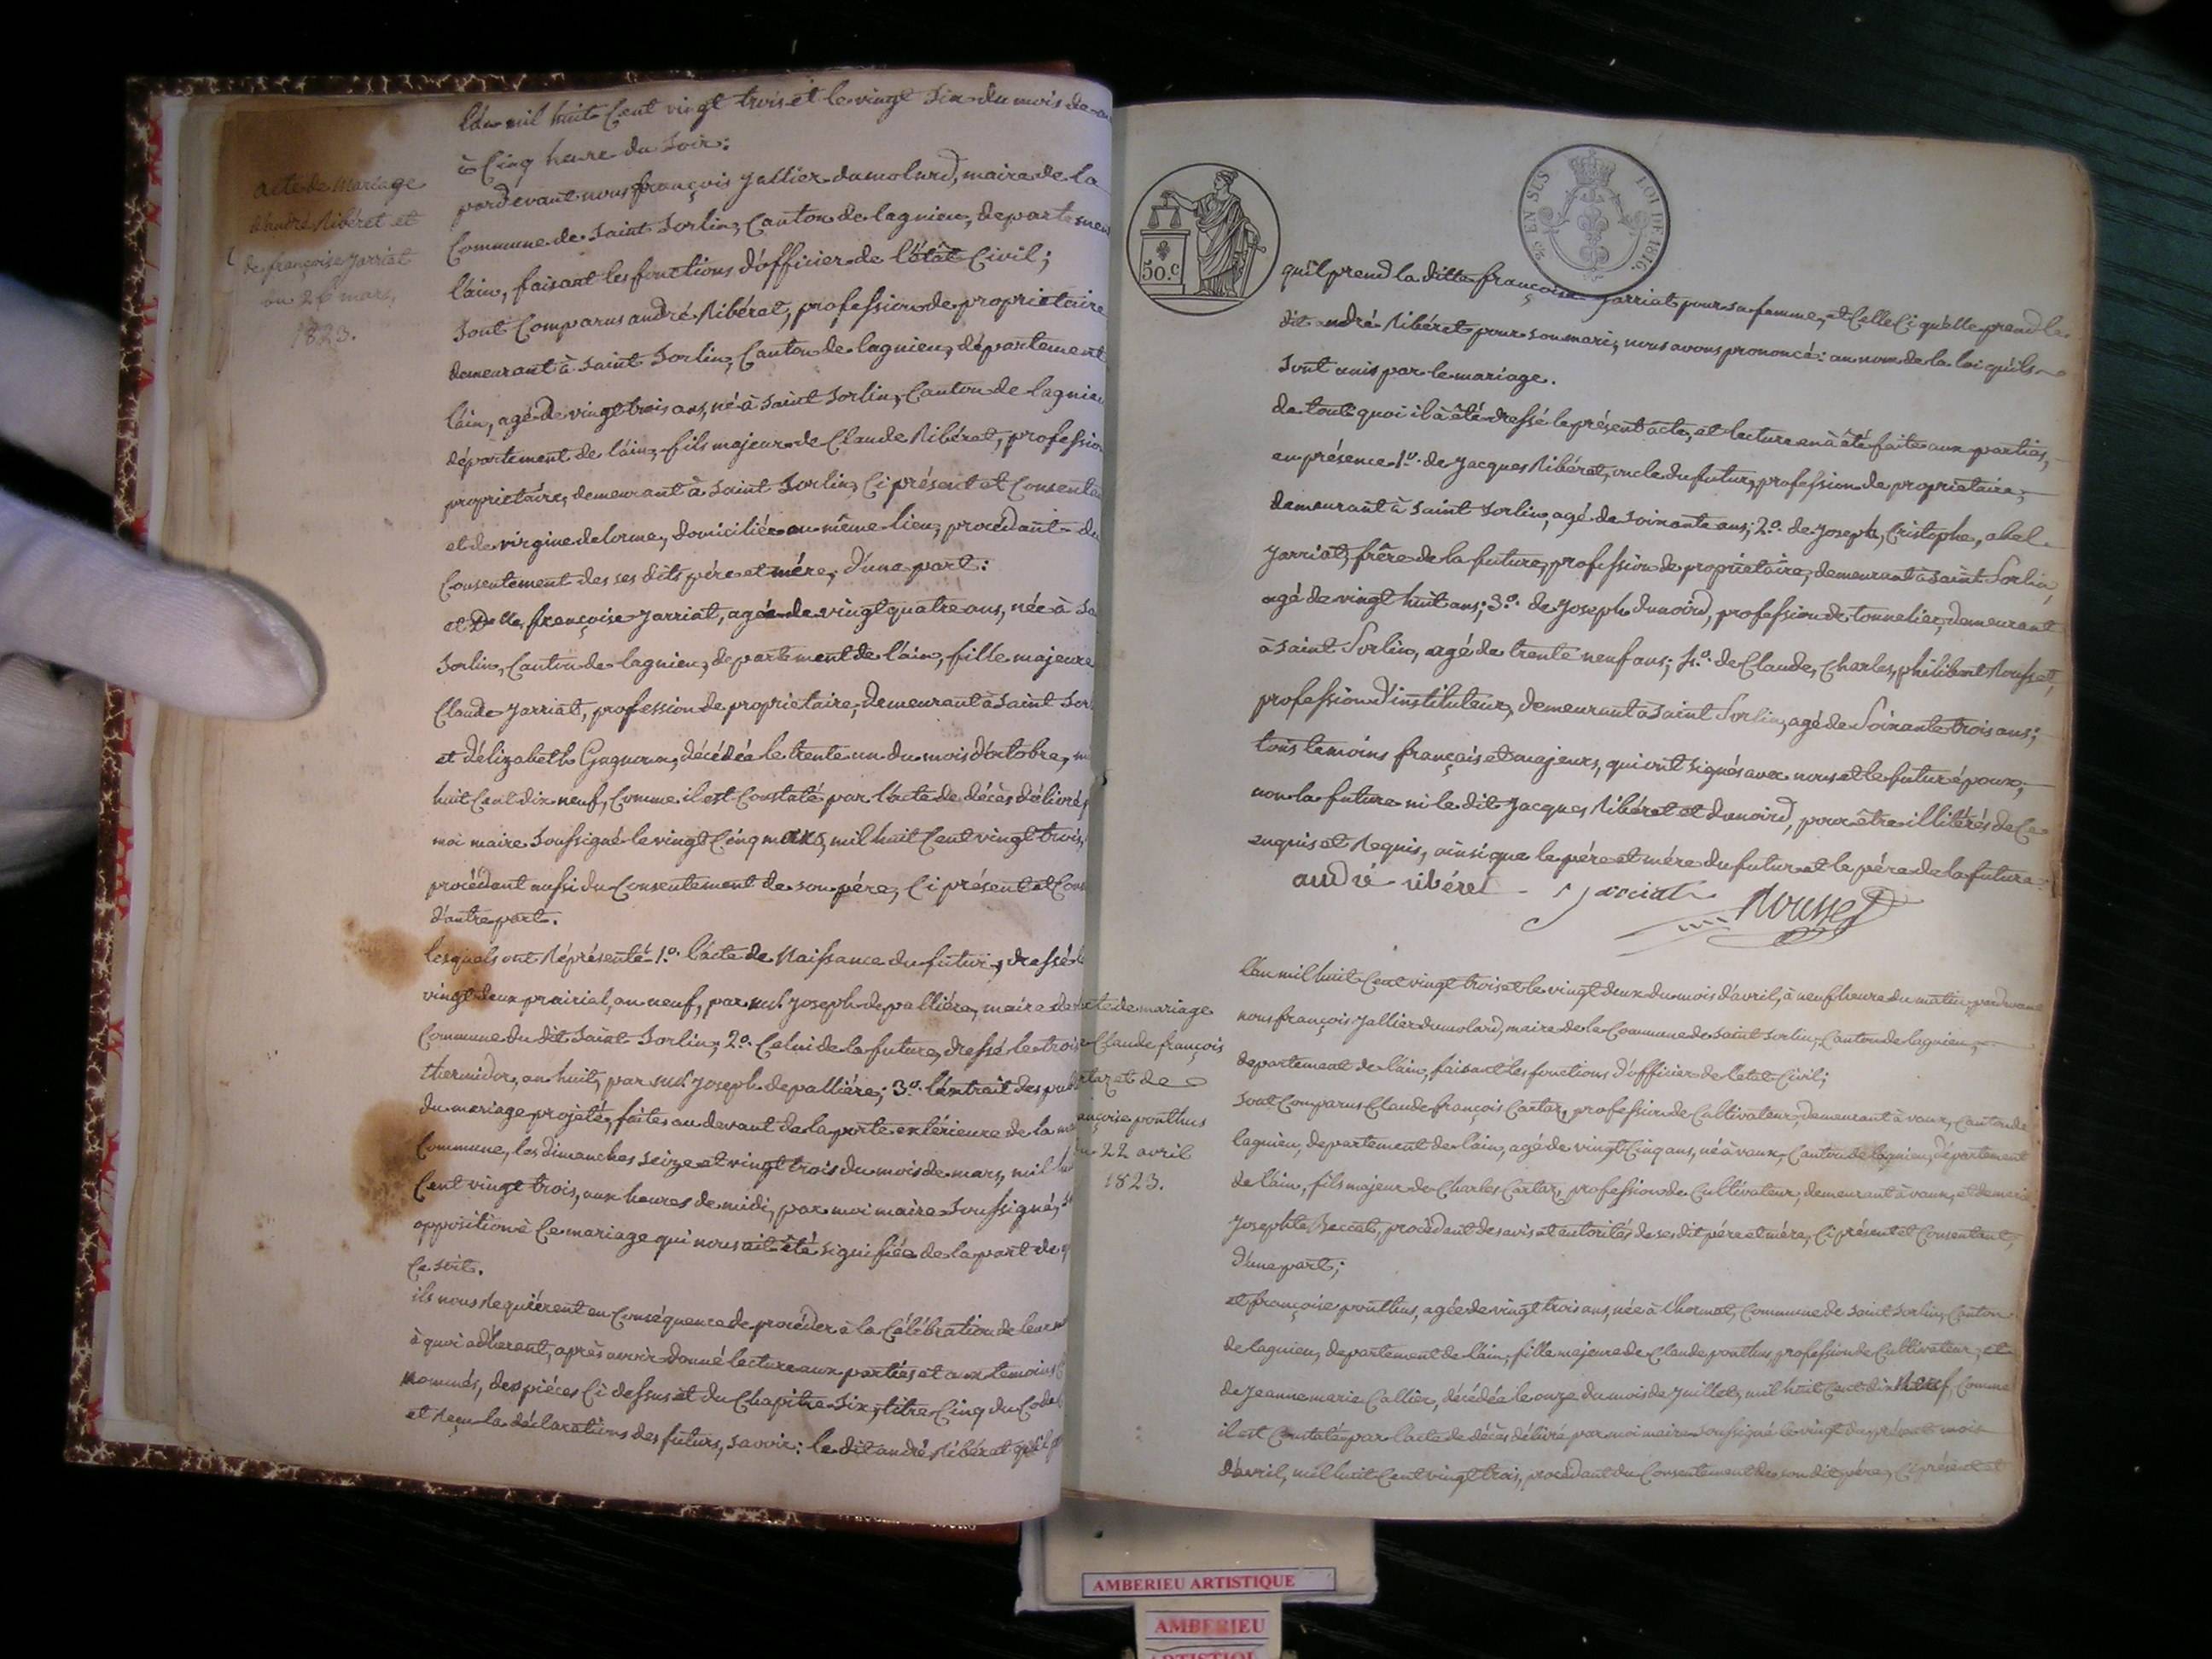 acte de mariage
d'andré Ribéret et
de françoise Jarriat
du 26 mars,
1823.
L'an mil huit Cent vingt trois et le vingt Six du mois de
à Cinq heure du Soir:
pardevant nous françois Jallier dumolard, maire de la
Commune de Saint Sorlin, Canton de lagnieu, departemen
l'ain, faisant les fonctions d'officier de l'êtat Civil;
Sont Comparus andré Ribéret, profession de propriétaire
demeurant à Saint Sorlin, Canton de lagnieu, département
l'ain, agé de vingt trois ans, né à Saint Sorlin, Canton de lagnieu
département de l'ain, fils majeur de Claude Ribéret, profession
propriétaire, demeurant à Saint Sorlin, Ci présent et Consenta
et de virgine delorme, domiciliée au même lieu, procédant du
Consentement des ses dits pére et mére, d'une part:
et Delle françoise Jarriat, agée de vingt quatre ans, née à Sa
Sorlin, Canton de lagnieu, departement de l'ain, fille majeure
Claude Jarriat, profession de propriétaire, demeurant à Saint Sor
et d'élizabeth Gagneux, décédée le trente un du mois d'octobre, mi
huit Cent dix neuf, Comme il est Constaté par l'acte de décès délivré
moi maire Soussigné le vingt Cinq mars, mil huit Cent vingt trois,
procédant aussi du Consentement de son pére, Ci présent et Con
d'autre part.
lesquels ont Réprésenté 1o. l'acte de Naissance du futur, dressé le
vingt deux prairial, an neuf, par Joseph depalliére, maire de
Commune du dit Saint Sorlin; 2o. Celui de la future, dressé le trois
thermidor, an huit, par Joseph depalliére; 3o. l'extrait des pub
du mariage projeté, faites au devant de la porte extérieure de la ma
Commune, les dimanches Seize et vingt trois du mois de mars, mil hu
Cent vingt trois, aux heures de midi, par moi maire Soussigné,
opposition à Ce mariage qui nous ait êté signifiée de la part de q
Ce Soit.
ils nous Requiérent en Conséquence de procéder à la Célébration de leur m
à quoi adhérant, après avoir donné lecture aux parties et aux temoins
nommés, des piéces Ci dessus et du Chapitre Six, titre Cinq du Code
et Reçu la déclarations des futurs, Savoir: le dit andré Ribéret qu'il
50.C
EN SUS
LOI DE 1816.
qu'il prend la ditte françoise Jarriat pour sa femme, et Celle Ci qu'elle prend le
dit andré Ribéret pour son mari, nous avons prononcé: au nom de la loi qu'ils
Sont unis par le mariage.
de tout quoi il à êté dressé le présent acte, et lecture en à êté faite aux parties,
en présence 1o. de Jacques Ribéret, oncle du futur, profession de propriétaire,
demeurant à Saint Sorlin, agé de Soixante ans; 2o. de Joseph, Cristophe, abel
Jarriat, frêre de la future, profession de propriétaire, demeurant à Saint Sorlin,
agé de vingt huit ans; 3o. de Joseph dunoird, profession de tonnelier, demeurant
à Saint Sorlin, agé de trente neuf ans; 4o. de Claude, Charles, philibert Rousset,
profession d'instituteur, demeurant à Saint Sorlin, agé de Soixante trois ans;
tous temoins français et majeurs, qui ont signés avec nous et le futur époux,
non la future ni le dit Jacques Ribéret et dunoird, pour être illitérés de Ce
enquis et Requis, ainsi que le pére et mére du futur et le pére de la future.
andré ribéret Jarriat Rousset
acte de mariage
Claude françois
rtaz et de
ançoise ponthus
du 22 avril
1823.
L'an mil huit Cent vingt trois et le vingt deux du mois d'avril, à neuf heure du matin, pardevant
nous françois Jallier dumolard, maire de la Commune de Saint Sorlin, Canton de lagnieu,
departement de l'ain, faisant les fonctions d'officier de l'etat Civil;
Sont Comparus Claude françois Cartaz, profession de Cultivateur, demeurant à vaux, Canton de
lagnieu, departement de l'ain, agé de vingt Cinq ans, né à vaux, Canton de lagnieu, département
de l'ain, fils majeur de Charles Cartaz, profession de Cultivateur, demeurant à vaux, et de marie
Josephte, procédant des avis et autorités de ses dit pére et mére, Ci présent et Consentant,
d'une part;
et françoise ponthus, agée de vingt trois ans, née à Chormat, Commune de Saint Sorlin, Canton
de lagnieu, departement de l'ain, fille majeure de Claude ponthus, profession de Cultivateur, et
de Jeanne marie Callier, décédée le onze du mois de Juillet, mil huit Cent dix Neuf, Comme
il est Constaté par l'acte de décès délivré par moi maire Soussigné le vingt du présent mois
d'avril, mil huit Cent vingt trois, procédant du Consentement de son dit pére, Ci présent et
AMBERIEU ARTISTIQUE
AMBERIEU
ARTISTIQUE